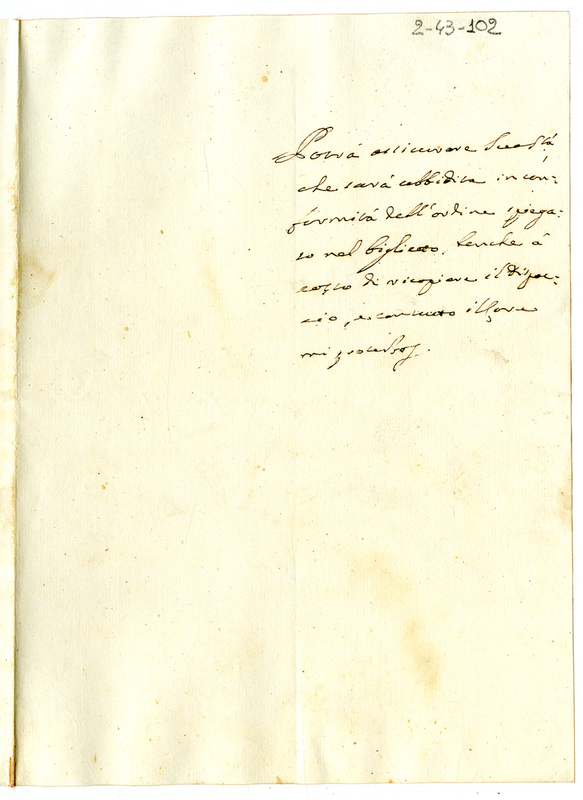 2-43-102
Potrà assicurare Sua Sta
che sarà ubbidita in con-
formità dell'ordine spiega-
to nel biglietto, benche à
costo di ricopiare il dispac-
cio, e con tutto il core
mi protesto